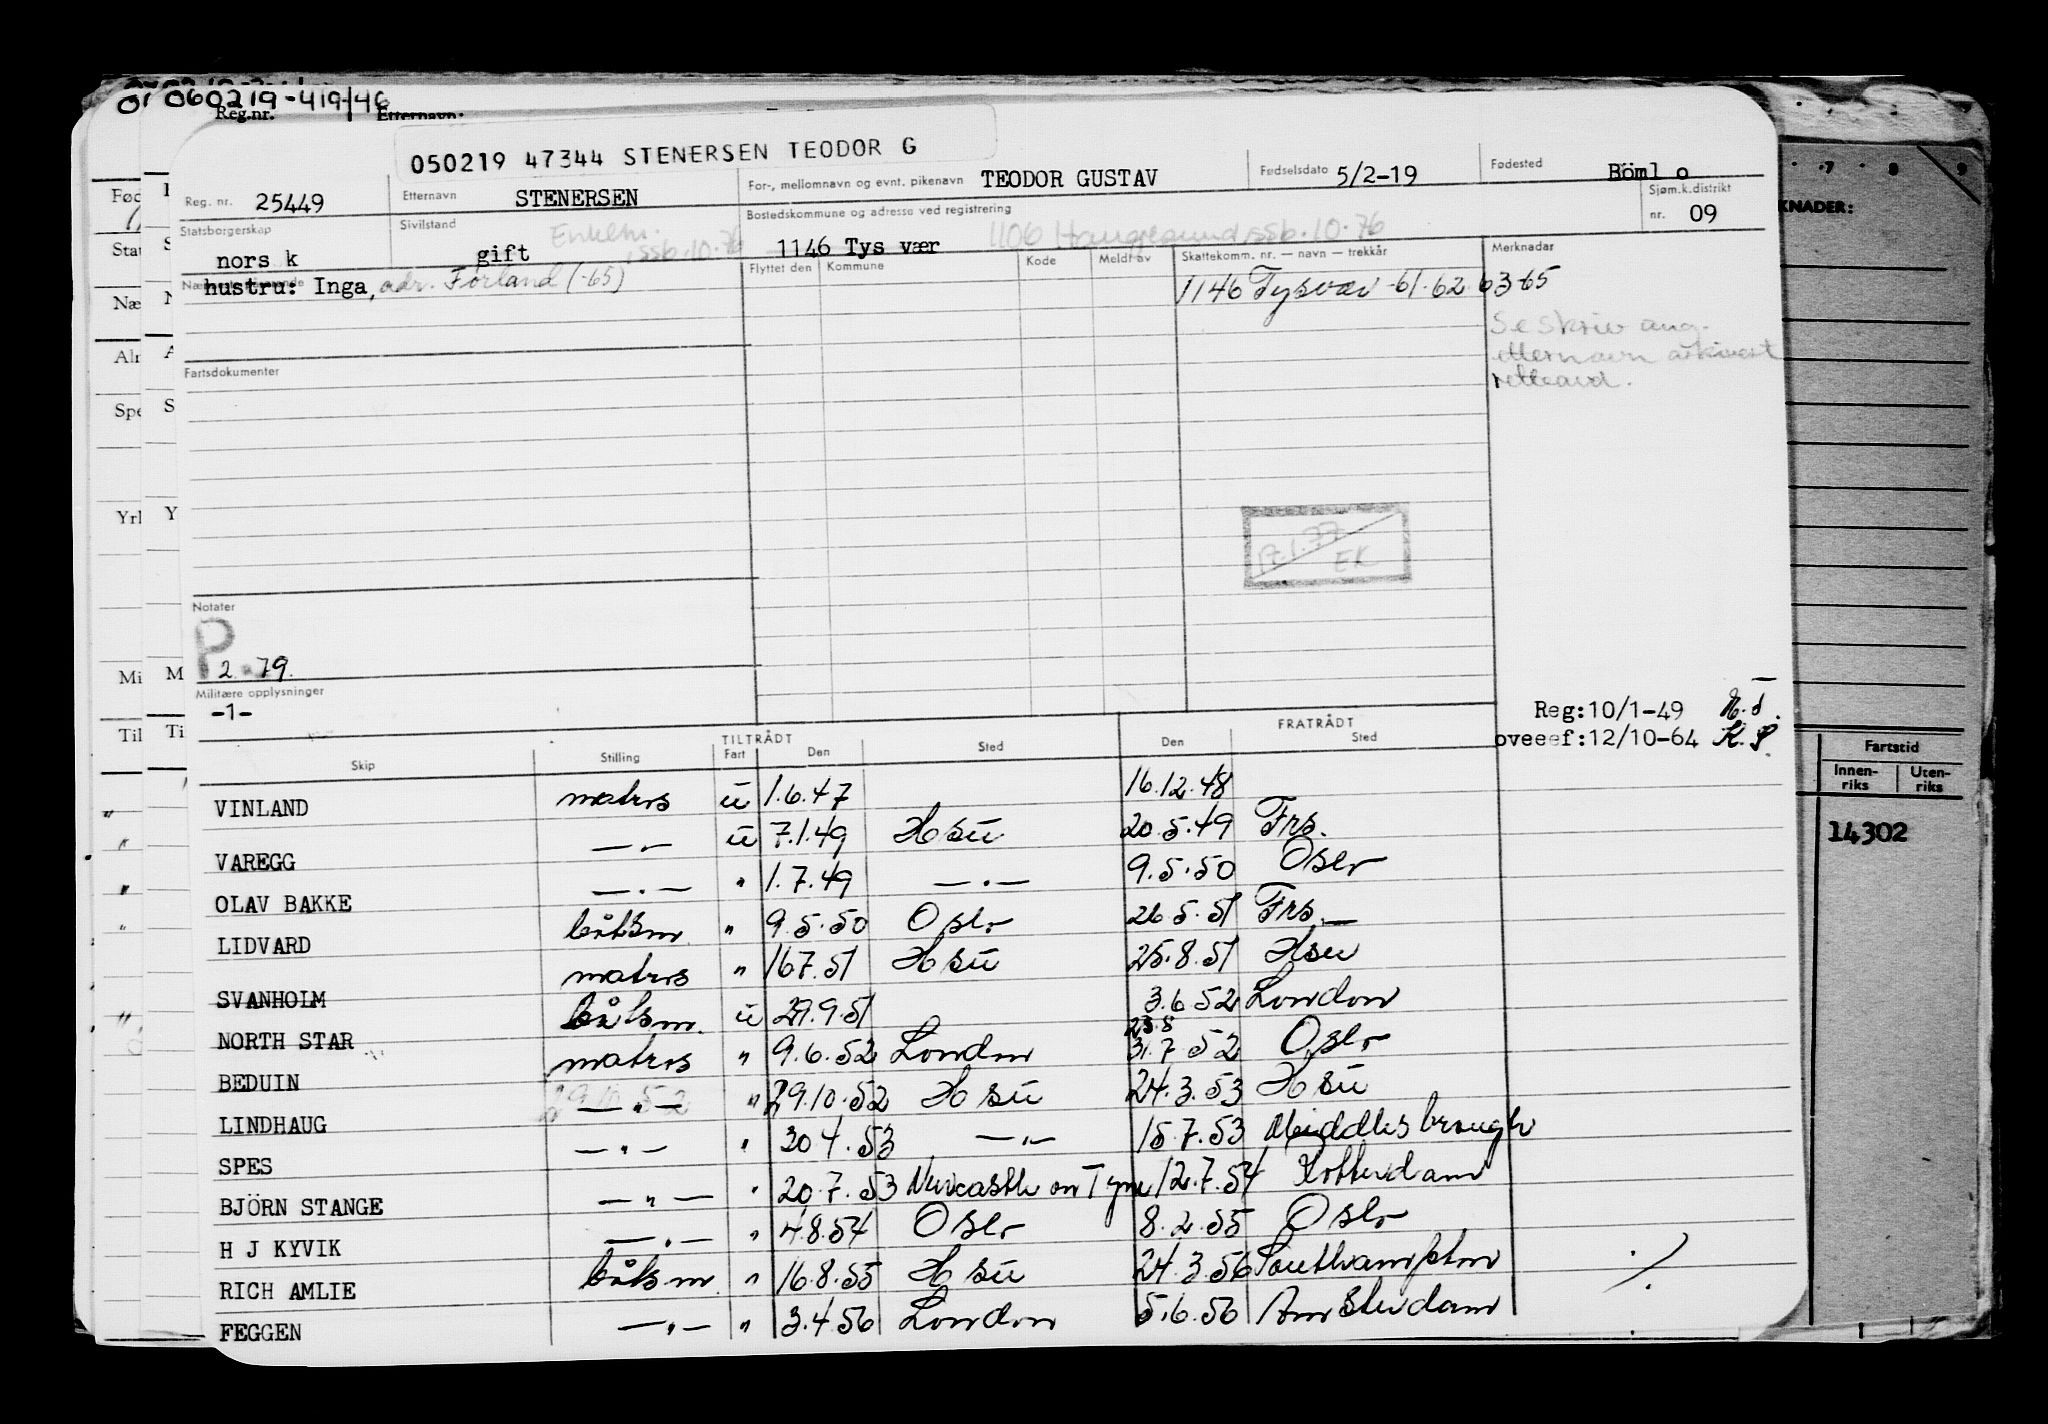 060219-419/46
Reg.nr. Etternavn:
050219 47344 STENERSEN TEODOR G
Reg. nr. 25449 Etternavn STENERSEN For-, mellomnavn og evnt. pikenavn TEODOR GUSTAV Fødselsdato 5/2-19 Fødested Böml o
Statsborgerskap nors k Sivilstand gift Enkem. ssb.10.76 Bostedskommune og adresse ved registrering 1146 Tys vær 1106 Haugesund ssb.10.76 Sjøm.k.distrikt nr. 09
hustru: Inga, adr. Førland (-65) Flyttet den Kommune Kode Meldt av Skattekomm. nr. — navn — trekkår Merknadar
1146 Tysvær -61-62 63-65
Se skriv ang.
etternavn arkivert
Fartsdokumenter
17.1.77
EK
Notater
P 2-79.
Militære opplysninger
-1-
Reg:10/1-49
oveeef:12/10-64 K.P.
TILTRÅDT FRATRÅDT
Skip Stilling Fart Den Sted Den Sted
VINLAND matros u 1.6.47 16.12.48
VAREGG —"— u 7.1.49 Hsu 20.5.49 Frs.
OLAV BAKKE —"— " 1.7.49 —"— 9.5.50 Oslo
LIDVARD båtsm. " 9.5.50 Oslo 26.5.51 Frs.
SVANHOIM matros " 167.51 Hsu 25.8.51 Hsu
NORTH STAR båtsm. u 29.9.51 3.6.52 London
BEDUIN matros " 9.6.52 London 23.8 31.7 52 Oslo
LINDHAUG 29.10.52 —"— " 29.10.52 Hsu 24.3.53 Hsu
SPES —"— " 304.53 —"— 15.7.53 Middlesbrough
BJÖRN STANGE —"— " 20.7.53 Newcastle on Tyne 12.7.54 Rotterdam
H J KYVIK —"— " 4.8.54 Oslo 8.2.55 Oslo
RICH AMLIE båtsm. " 16.8.55 Hsu 24.3.56 Southampton
FEGGEN —"— " 3.4.56 London 5.6.56 Amsterdam
./.
Fød
Stat
Næ
Aln
Spe
Yrl
Mi
Til
KNADER:
7 8 9
Fartstid
Innen-riks Uten-riks
14302